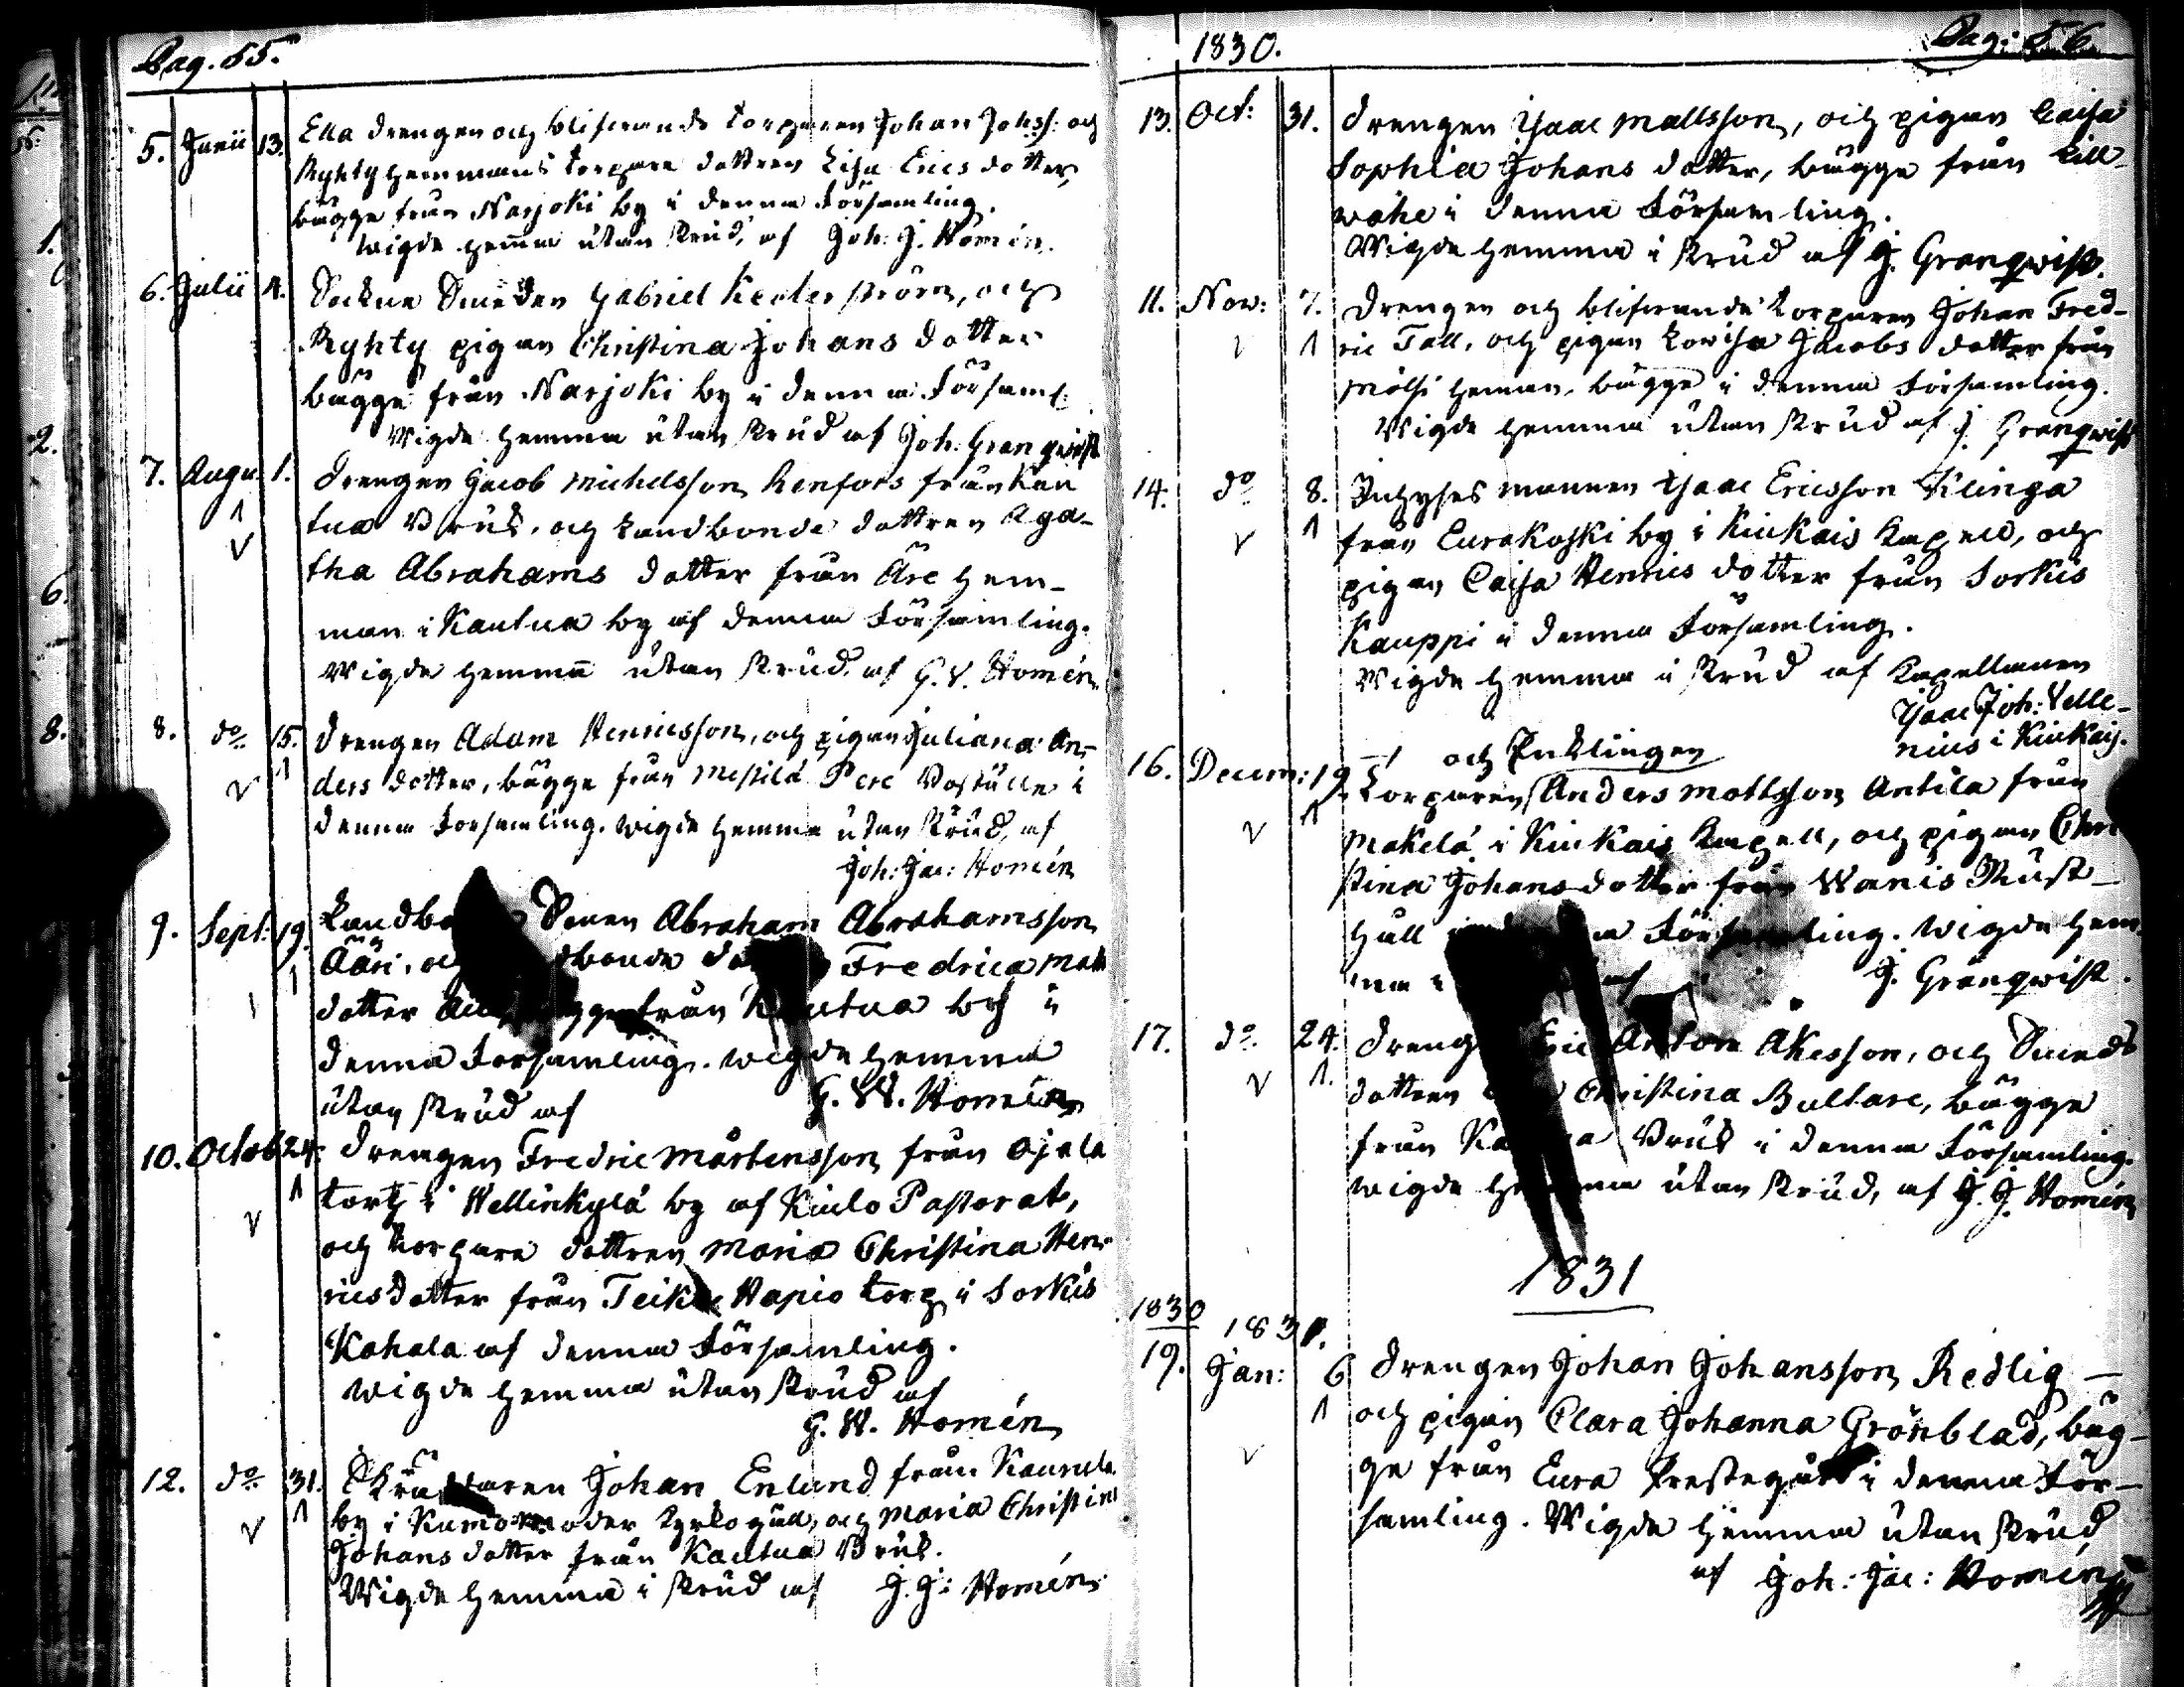 Pag. 55.
5. Junii 13. Ella drengen och blifvande torparen Johan Johss: och
Ryhty hemmans torpare dottren Lisa Erics dotter,
bägge från Narjoki by i denna Församling.
Wigde hemma utan skrud, af Joh: J. Homén.
6. Julii 4. Sockne Smeden Gabriel Kecler ström, och
Ryhty pigan Christina Johans dotter
bägge från Narjoki by i denna Församl:
Wigde hemma utan skrud af Joh: Granqwist
7. Augu. 1. Drengen Jacob Michelsson Renfors från Kau
tua Bruk, och Landbonde dottren Aga-
tha Abrahams dotter från Äre hem-
man i Kautua by af denna Församling.
Wigde hemma utan skrud, af G. W. Homén
8. do 15. Drengen Adam Henricsson, och pigan Juliana An-
ders dotter, bägge från Mestilä Pere
denna Församling. Wigde hemma utan skrud, af
Joh: Jac: Homén
9. Sept: 19. Sonen Abraham Abrahamsson
Ääri, Fredrica
dotter från Kautua by i
denna Församling. Wigde hemma
utan skrud af G. W. Homén
10. Octob 24. Drengen Fredric Mårtensson från Ojala
torp i Wellinkylä by af Kiulo Pastorat,
och torpare dottren Maria Christina Hen-
rics dotter från Hapio torp i Sorkis
Kahala af denna Församling.
Wigde hemma utan skrud af
G. W. Homén
12. do 31. Johan Enlund från
by i Kumo moder kyrkogäll, och Maria Christina
Johans dotter från Kautua Bruk.
Wigde hemma i skrud af J. J: Homén
1830. Pag: 56.
13. Oct: 31. Drengen Isaac Mattsson, och pigan Caisa
Sophia Johans dotter, bägge från Lill
wähe i denna Församling.
Wigde hemma i skrud af J. Granqwist.
11. Nov: 7. Drengen och blifvande torparen Johan Fred-
ric Tall, och pigan Lowisa Jacobs dotter från
Mölsi heman, bägge i denna Församling.
Wigde hemma utan skrud af J. Granqwist
14. do 8. Inhyses mannen Isaac Ericsson Klinga
från Eurakoski by i Kiukais Kapell, och
pigan Caisa Henrics dotter från Sorkis
Kauppi i denna Församling.
Wigde hemma i skrud af Kapellanen
Isaac Joh: Velle-
nius i Kiukais.
och Enklingen
16. Decem: 19 Torparen Anders Mattsson Antila från
Makelä i Kiukais Kapell, och pigan Chri
stina Johans dotter från Wanis
Församling. Wigde hem
ma i af J. Granqwist.
17. do. 24. Dreng Eric Anton Åkesson, och Smeds
dottren Christina Bultare, bägge
från Bruk i denna Församling.
Wigde hemma utan skrud, af J. J. Homén
1831
1830
1831.
19. Jan: 6 Drengen Johan Johansson Redlig
och pigan Clara Johanna Grönblad, bäg-
ge från Eura Prestegård i denna För-
samling. Wigde hemma utan skrud,
af Joh: Jac: Homén